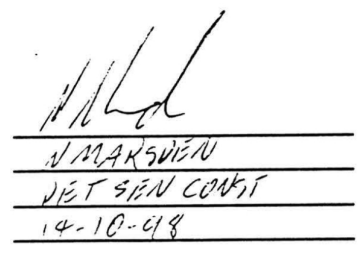 N MARSDEN
DET SEN CONST
14-10-98